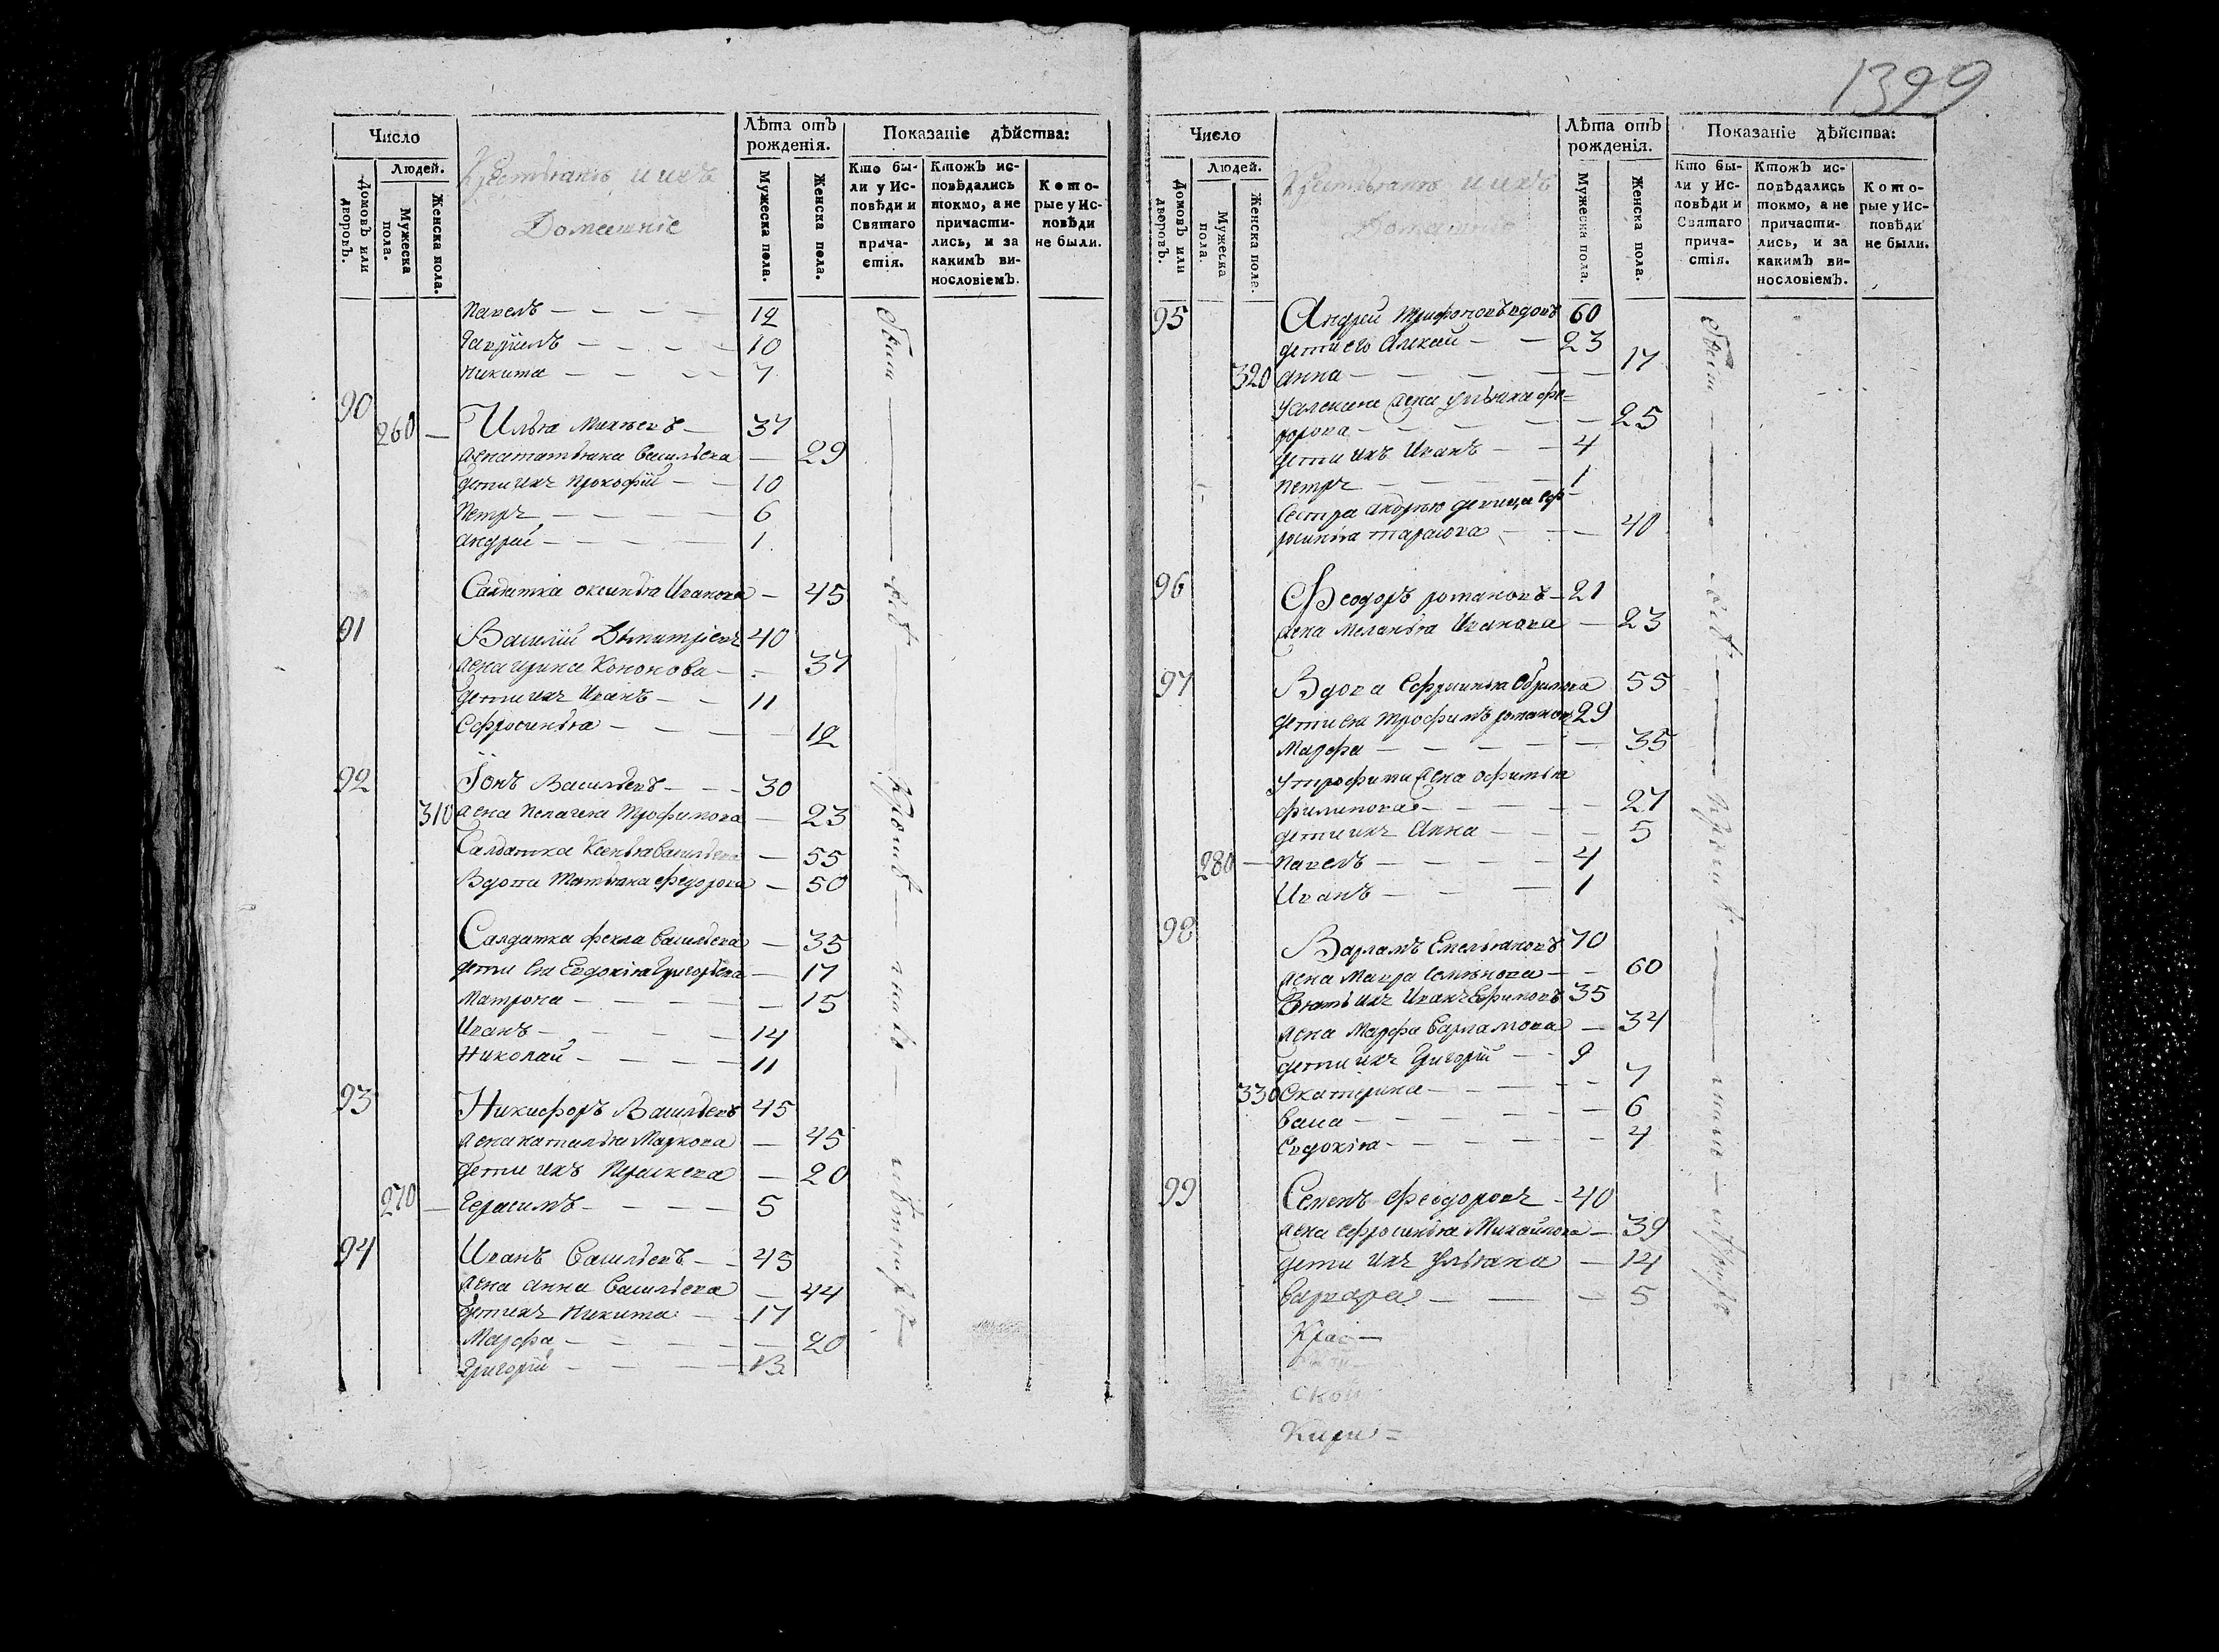 1399
Число
Лѣта отъ рожденія.
Показаніе дѣйства:
Людей.
Домовъ или дворовъ.
Мужеска пола.
Женска пола.
Крестьянъ и ихъ
Домашніе
Мужеска пола.
Женска пола.
Кто были у Исповѣди и Святаго причастія.
Ктожъ исповѣдались токмо, а не причастились, и за какимъ винословіемъ.
Которые у Исповѣди не были.
Павелъ — — — — 12
Гавріилъ — — — — 10
Никита — — — — 7
90
260 — Илья Михѣевъ — 37
жена татьяна васильева — 29
дети ихъ Прокофій — — 10
Петръ — — — — 6
андрей — — — — 1
Салдатка оксинья Иванова — 45
91 Василій Дымитріевъ 40
жена ирина Кононова — 37
дети ихъ Иванъ — — 11
Ефросинья — — — — 12
92 Іонъ Васильевъ — — 30
310 жена Пелагея Трофимова — 23
Салдатка Ксенья васильева — 55
Вдова Татьяна федорова — 50
Салдатка фекла васильева — 35
дети ея Евдокія Григорьева — 17
Матрона — — — — 15
Иванъ — — — — 14
Николай — — — — 11
93 Никифоръ Васильевъ 45
жена наталья Маркова — 45
дети ихъ — 20
270 — Герасимъ — — — — 5
94 Иванъ Васильевъ — — 45
жена анна васильева — 44
дети ихъ Никита — — 17
Марфа — — — — 20
Григорій — — — — 13
Число
Лѣта отъ рожденія.
Показаніе дѣйства:
Людей.
Домовъ или дворовъ.
Мужеска пола.
Женска пола.
Крестьянъ и ихъ
Домашніе
Мужеска пола.
Женска пола.
Кто были у Исповѣди и Святаго причастія.
Ктожъ исповѣдались токмо, а не причастились, и за какимъ винословіемъ.
Которые у Исповѣди не были.
95 Андрей Трифоновъ вдовъ 60
дети его Алексей — — 23
320 анна — — — — 17
жена ульяна фе=
дорова — — — — 25
дети ихъ Иванъ — — 4
Петръ — — — — 1
Сестра девица еф-
росинья тарасова — — 40
96 Феодоръ романовъ — 21
жена Меланья Иванова — 23
97 Вдова Ефросинья 55
дети ея Трофимъ романовъ 29
Марфа — — — — 35
У трофима жена афимья
филипова — — — — 27
дети ихъ Анна — — — 5
280 — Павелъ — — — — 4
Иванъ — — — 1
98 Варламъ Емельяновъ 70
жена Мавра семенова — — 60
Зять ихъ Иванъ Ефимовъ 35
жена Марфа варламова — 34
дети ихъ Григорій — — 9
330 Екатерина — — — — 7
— — — — 6
Евдокія — — — — 4
99 Семенъ феодоровъ — 40
жена ефросинья Михайлова — 39
дети ихъ ульяна — 14
варвара — — — 5
Крас—
ской
Кири=